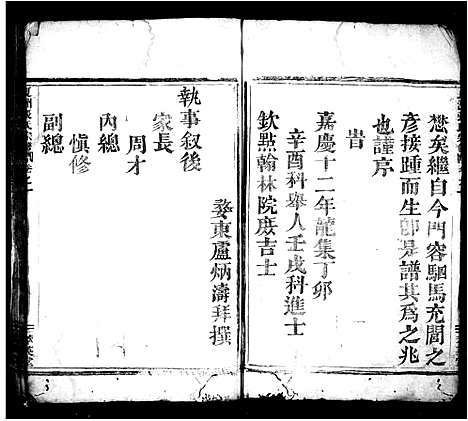 懋矣繼自今門容駟馬充閭之
彥接踵而生卽是譜其為之兆
也謹序
旹
嘉慶十二年龍集丁卯
辛酉科舉人壬戌科進士
欽點翰林院庶吉士
婺東盧炳濤拜撰
執事叙後
家長
周才
內總
慎修
副總